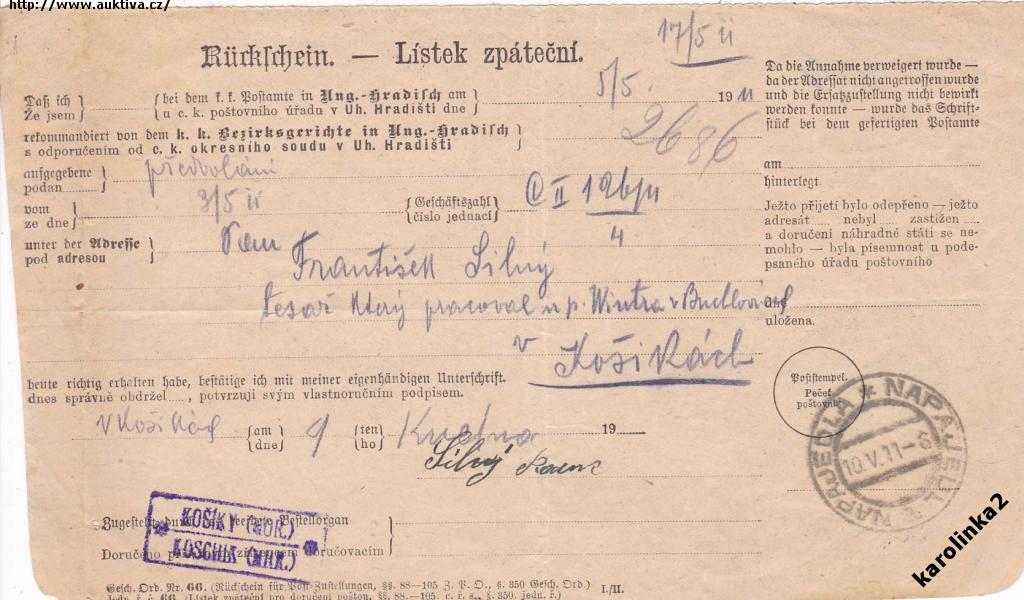 http://www.auktiva.cz/
17/5 11
Rückschein. — Lístek zpáteční.
Daß ich
Že jsem
bei dem k. k. Postamte in Ung.-Hradisch am
u c. k. poštovního úřadu v Uh. Hradišti dne
5/5. 19 11
2686
rekommandiert von dem k. k. Bezirksgerichte in Ung.-Hradisch
s odporučením od c. k. okresního soudu v Uh. Hradišti
aufgegebene
podan
předvolání
vom
ze dne
3/5 11
Geschäftszahl
číslo jednací
C II 126/11
4
unter der Adresse
pod adresou
Pan
František Silný
tesař který pracoval u p. Wintra v Buchlovicích
v Košikách
heute richtig erhalten habe, bestätige ich mit meiner eigenhändigen Unterschrift.
dnes správně obdržel....., potvrzuji svým vlastnoručním podpisem.
v Košikách
am
dne
9
ten
ho
19
Silný
Da die Annahme verweigert wurde —
da der Adressat nicht angetroffen wurde
und die Ersatzzustellung nicht bewirkt
werden konnte — wurde das Schrift-
stück bei dem gefertigten Postamte
am
hinterlegt.
Ježto přijetí bylo odepřeno — ježto
adresát nebyl zastižen
a doručení náhradné státi se ne-
mohlo — byla písemnost u pode-
psaného úřadu poštovního
dne
uložena.
Poststempel.
Pečeť
poštovní
NAPAJEDL
NAPAJEDLA
10.V.11-6
Zugestellt durch
Bestellorgan
Doručeno
doručovacím
KOŠÍKY (MOR.)
KOSCHIK (MHR.)
Gesch. Ord. Nr. 66. (Rückschein für Post-Zustellungen, §§. 88—105 Z. P. O., §. 350 Gesch. Ord.)
Jedn. ř. č. 66. (Lístek zpáteční pro doručení poštou, §§. 88—105. c. ř. s., §. 350. jedn. ř.)
I./II.
karolinka2